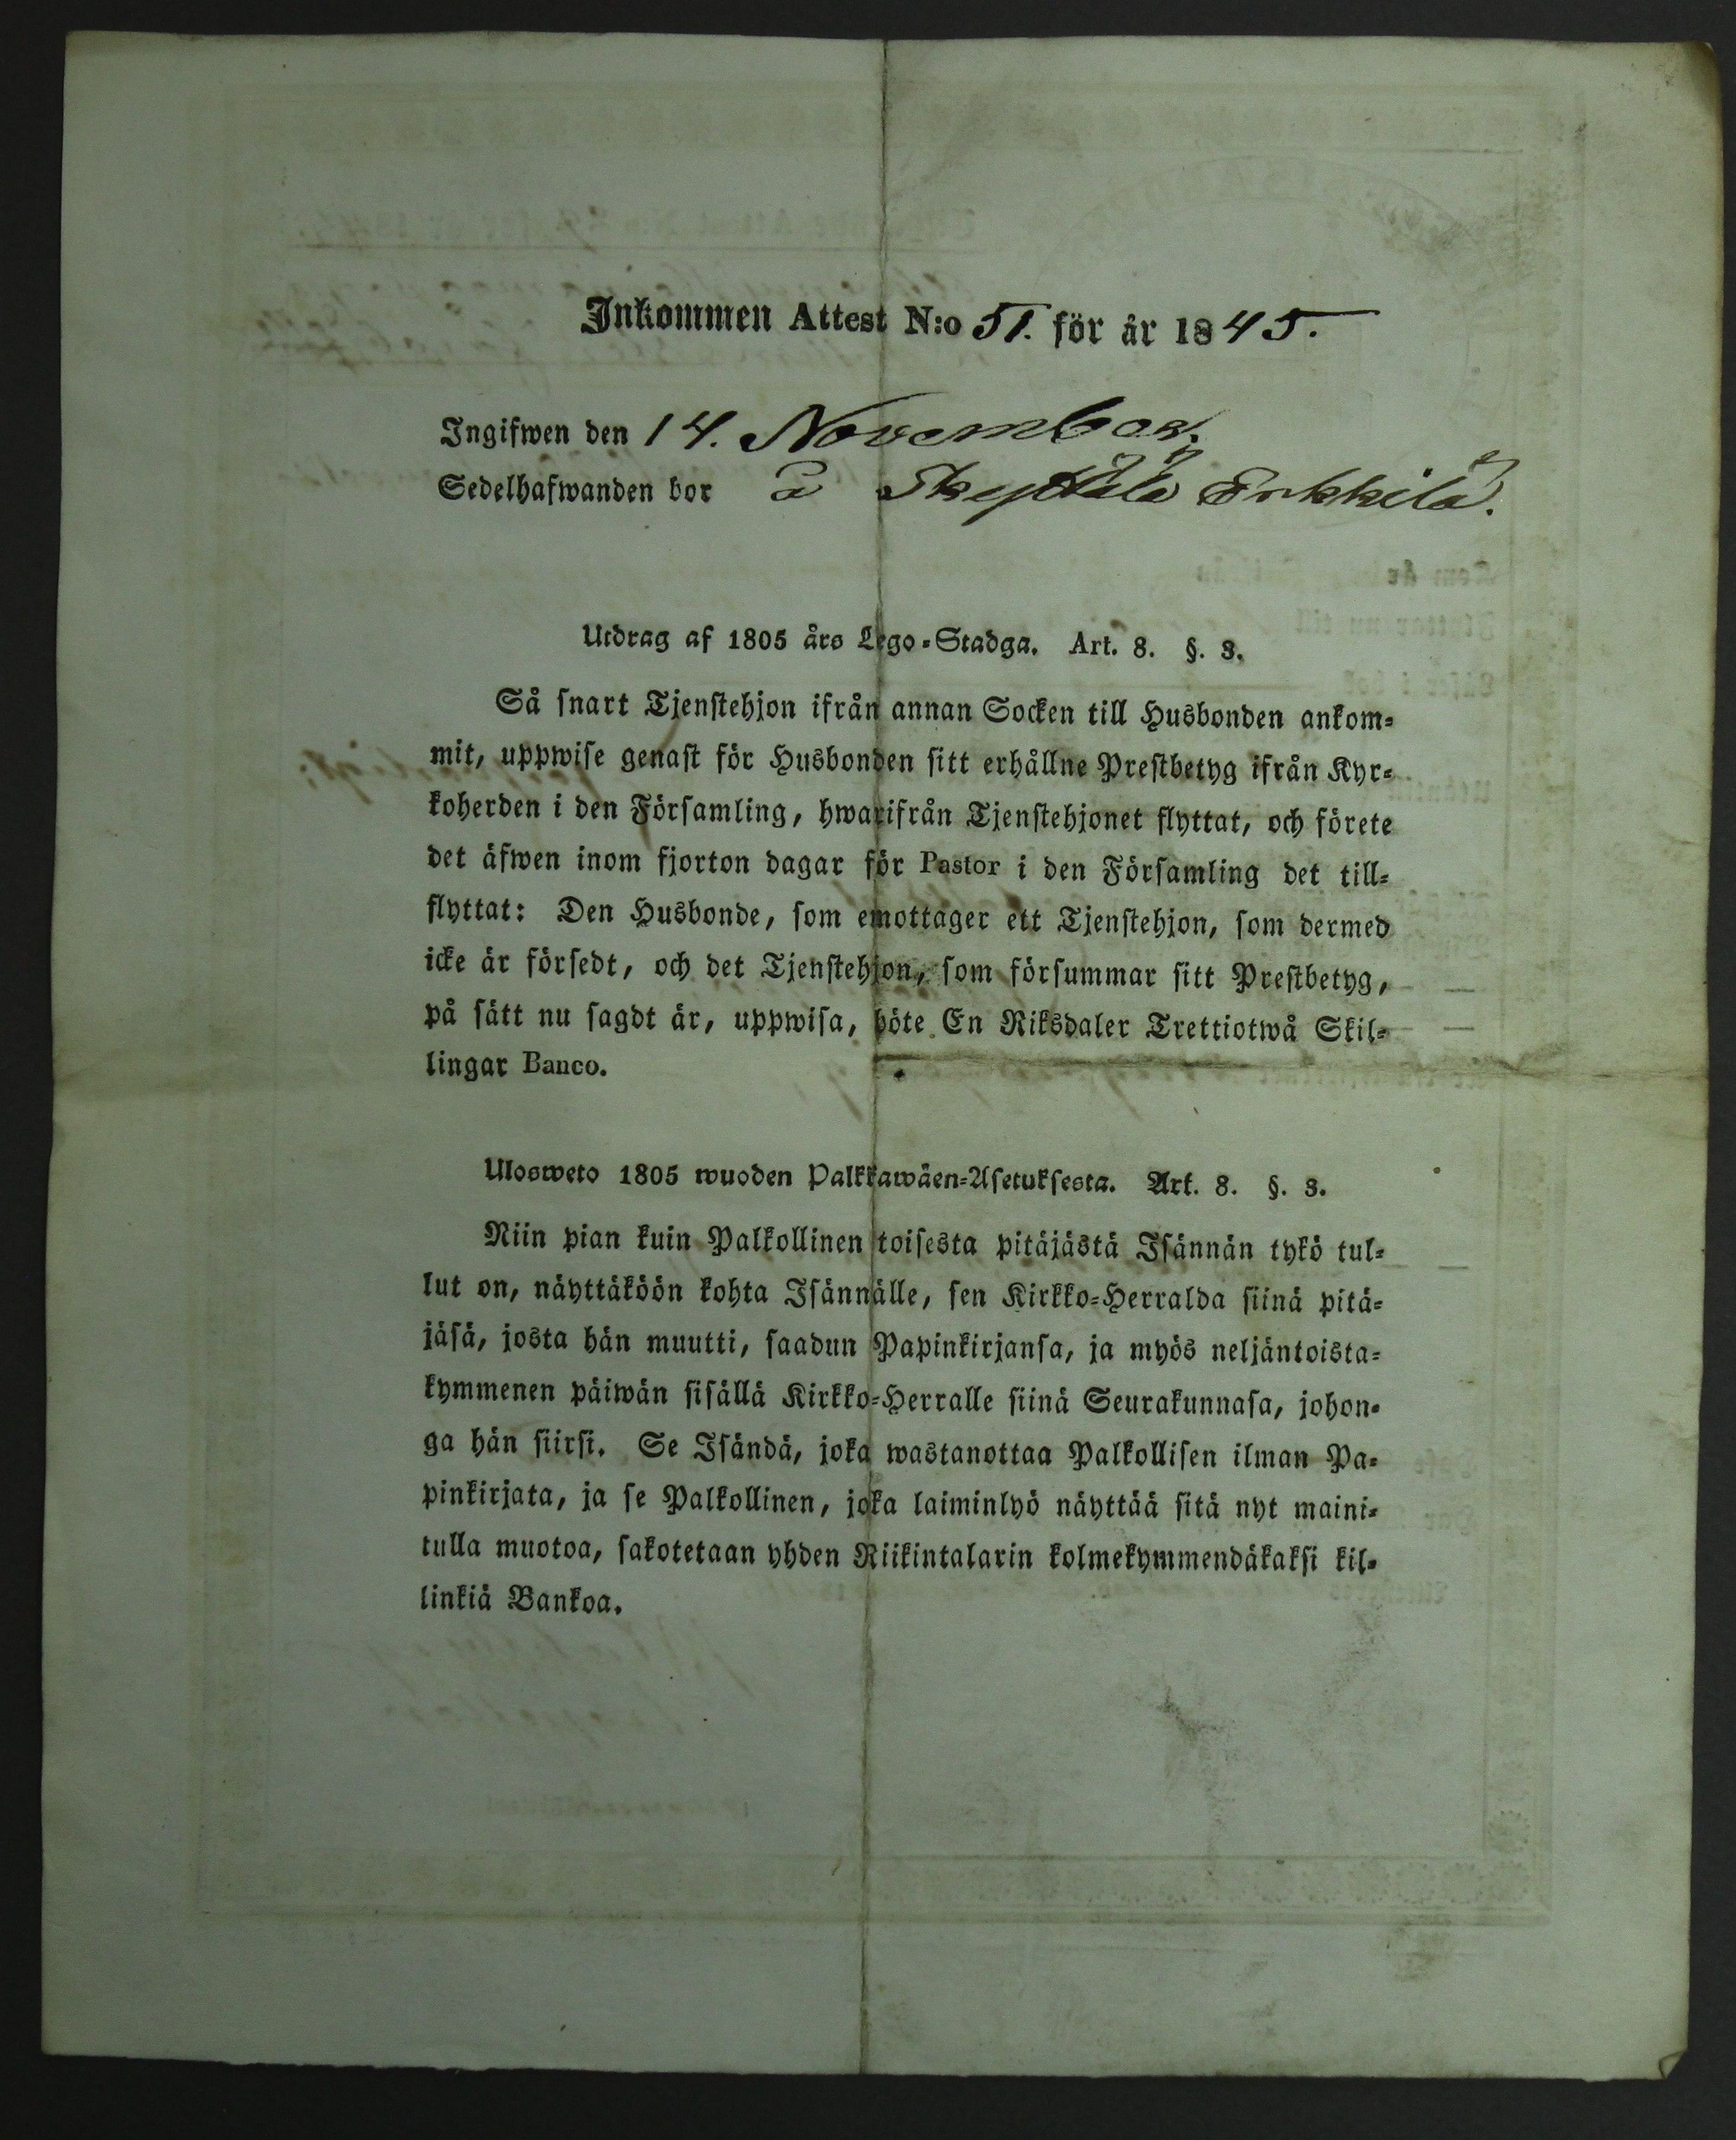 Inkommen Attest N:o 51. för år 1845.
Ingifwen den 14. November.
Sedelhafwanden bor å Skyttälä Erkkilä.
Utdrag af 1805 års Lego-Stadga. Art. 8. §. 3.
Så snart Tjenstehjon ifrån annan Socken till Husbonden ankom-
mit, uppwise genast för Husbonden sitt erhållne Prestbetyg ifrån Kyr-
koherden i den Församling, hwarifrån Tjenstehjonet flyttat, och förete
det äfwen inom fjorton dagar för Pastor i den Församling det till-
flyttat: Den Husbonde, som emottager ett Tjenstehjon, som dermed
icke är försedt, och det Tjenstehjon, som försummar sitt Prestbetyg,
på sätt nu sagdt är, uppwisa, böte En Riksdaler Trettiotwå Skil-
lingar Banco.
Ulosweto 1805 wuoden Palkkawäen-Asetuksesta. Art. 8. §. 3.
Niin pian kuin Palkollinen toisesta pitäjästä Isännän tykö tul-
lut on, näyttäköön kohta Isännälle, sen Kirkko-Herralda siinä pitä-
jäsä, josta hän muutti, saadun Papinkirjansa, ja myös neljäntoista-
kymmenen päiwän sisällä Kirkko-Herralle siinä Seurakunnasa, johon-
ga hän siirsi. Se Isändä, joka wastanottaa Palkollisen ilman Pa-
pinkirjata, ja se Palkollinen, joka laiminlyö näyttää sitä nyt maini-
tulla muotoa, sakotetaan yhden Riikintalarin kolmekymmendäkaksi kil-
linkiä Bankoa.